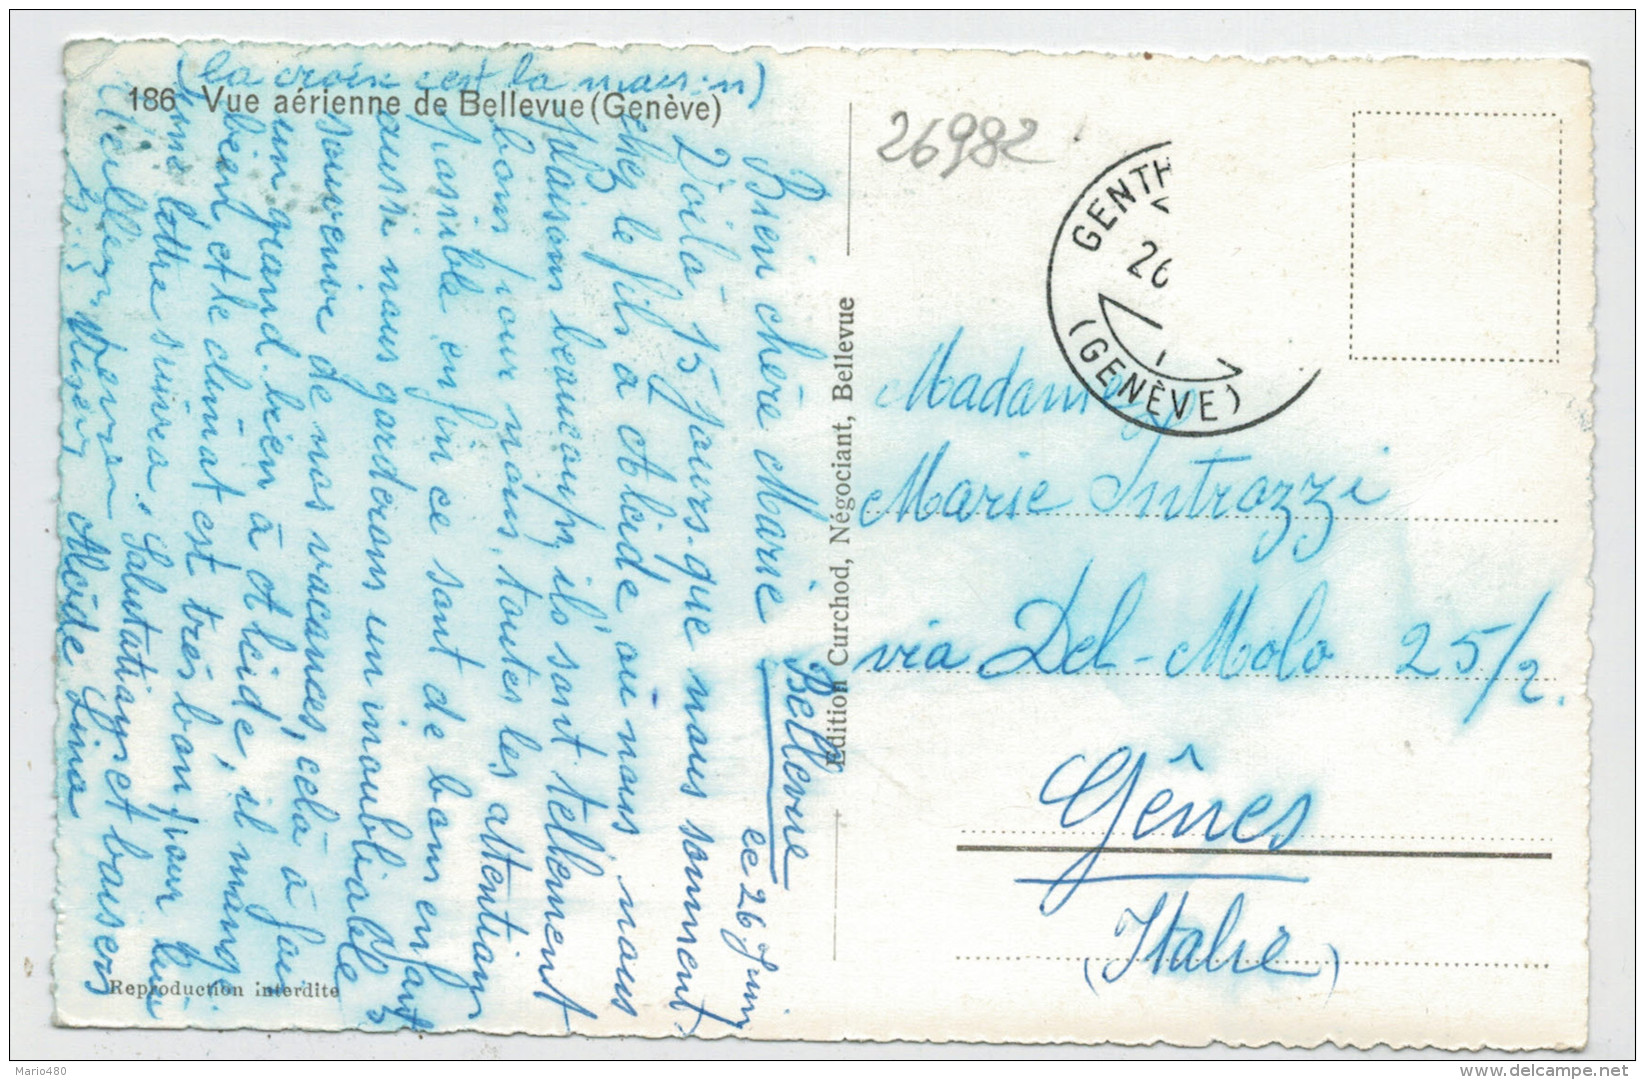 (la croix c'est la maison)
186 Vue aérienne de Bellevue (Genève)
Bellevue ce 26 Juin
Bien chère Marie
Voilà 15 jours que nous sommes
chez le fils a Alcide, ou nous nous
plaisons beaucoup, ils sont tellement
bons pour nous, toutes les attentions
possible, enfin ce sont de bons enfants
aussi nous garderons un inoubliable
souvenir de nos vacances, celà à fait
un grand bien à Alcide, il mange
bien et le climat est très bon pour lui
une lettre suivra. Salutations et baisers
Alcide Lina
Reproduction interdite
Edition Curchod, Négociant, Bellevue
26982
GENTH
26
(GENÈVE)
Madame
Marie Introzzi
via Del-Molo 25/2.
Gênes
(Italie)
Mario480
delcampe.net